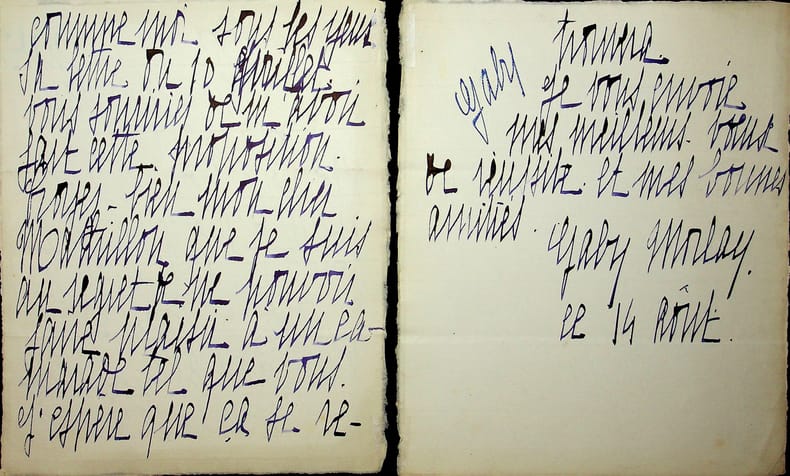 comme moi sous les yeux
sa lettre du 10 Juillet,
vous
fait cette proposition.
Croyez-bien mon cher
que je suis
au regret de ne pouvoir
faire plaisir à un ca-
marade tel que vous.
J'espère que ça se re-
trouvera.
Gaby
Je vous envoie
mes meilleurs vœux
de réussite et mes bonnes
amitiés.
Gaby Morlay.
ce 14 Août.